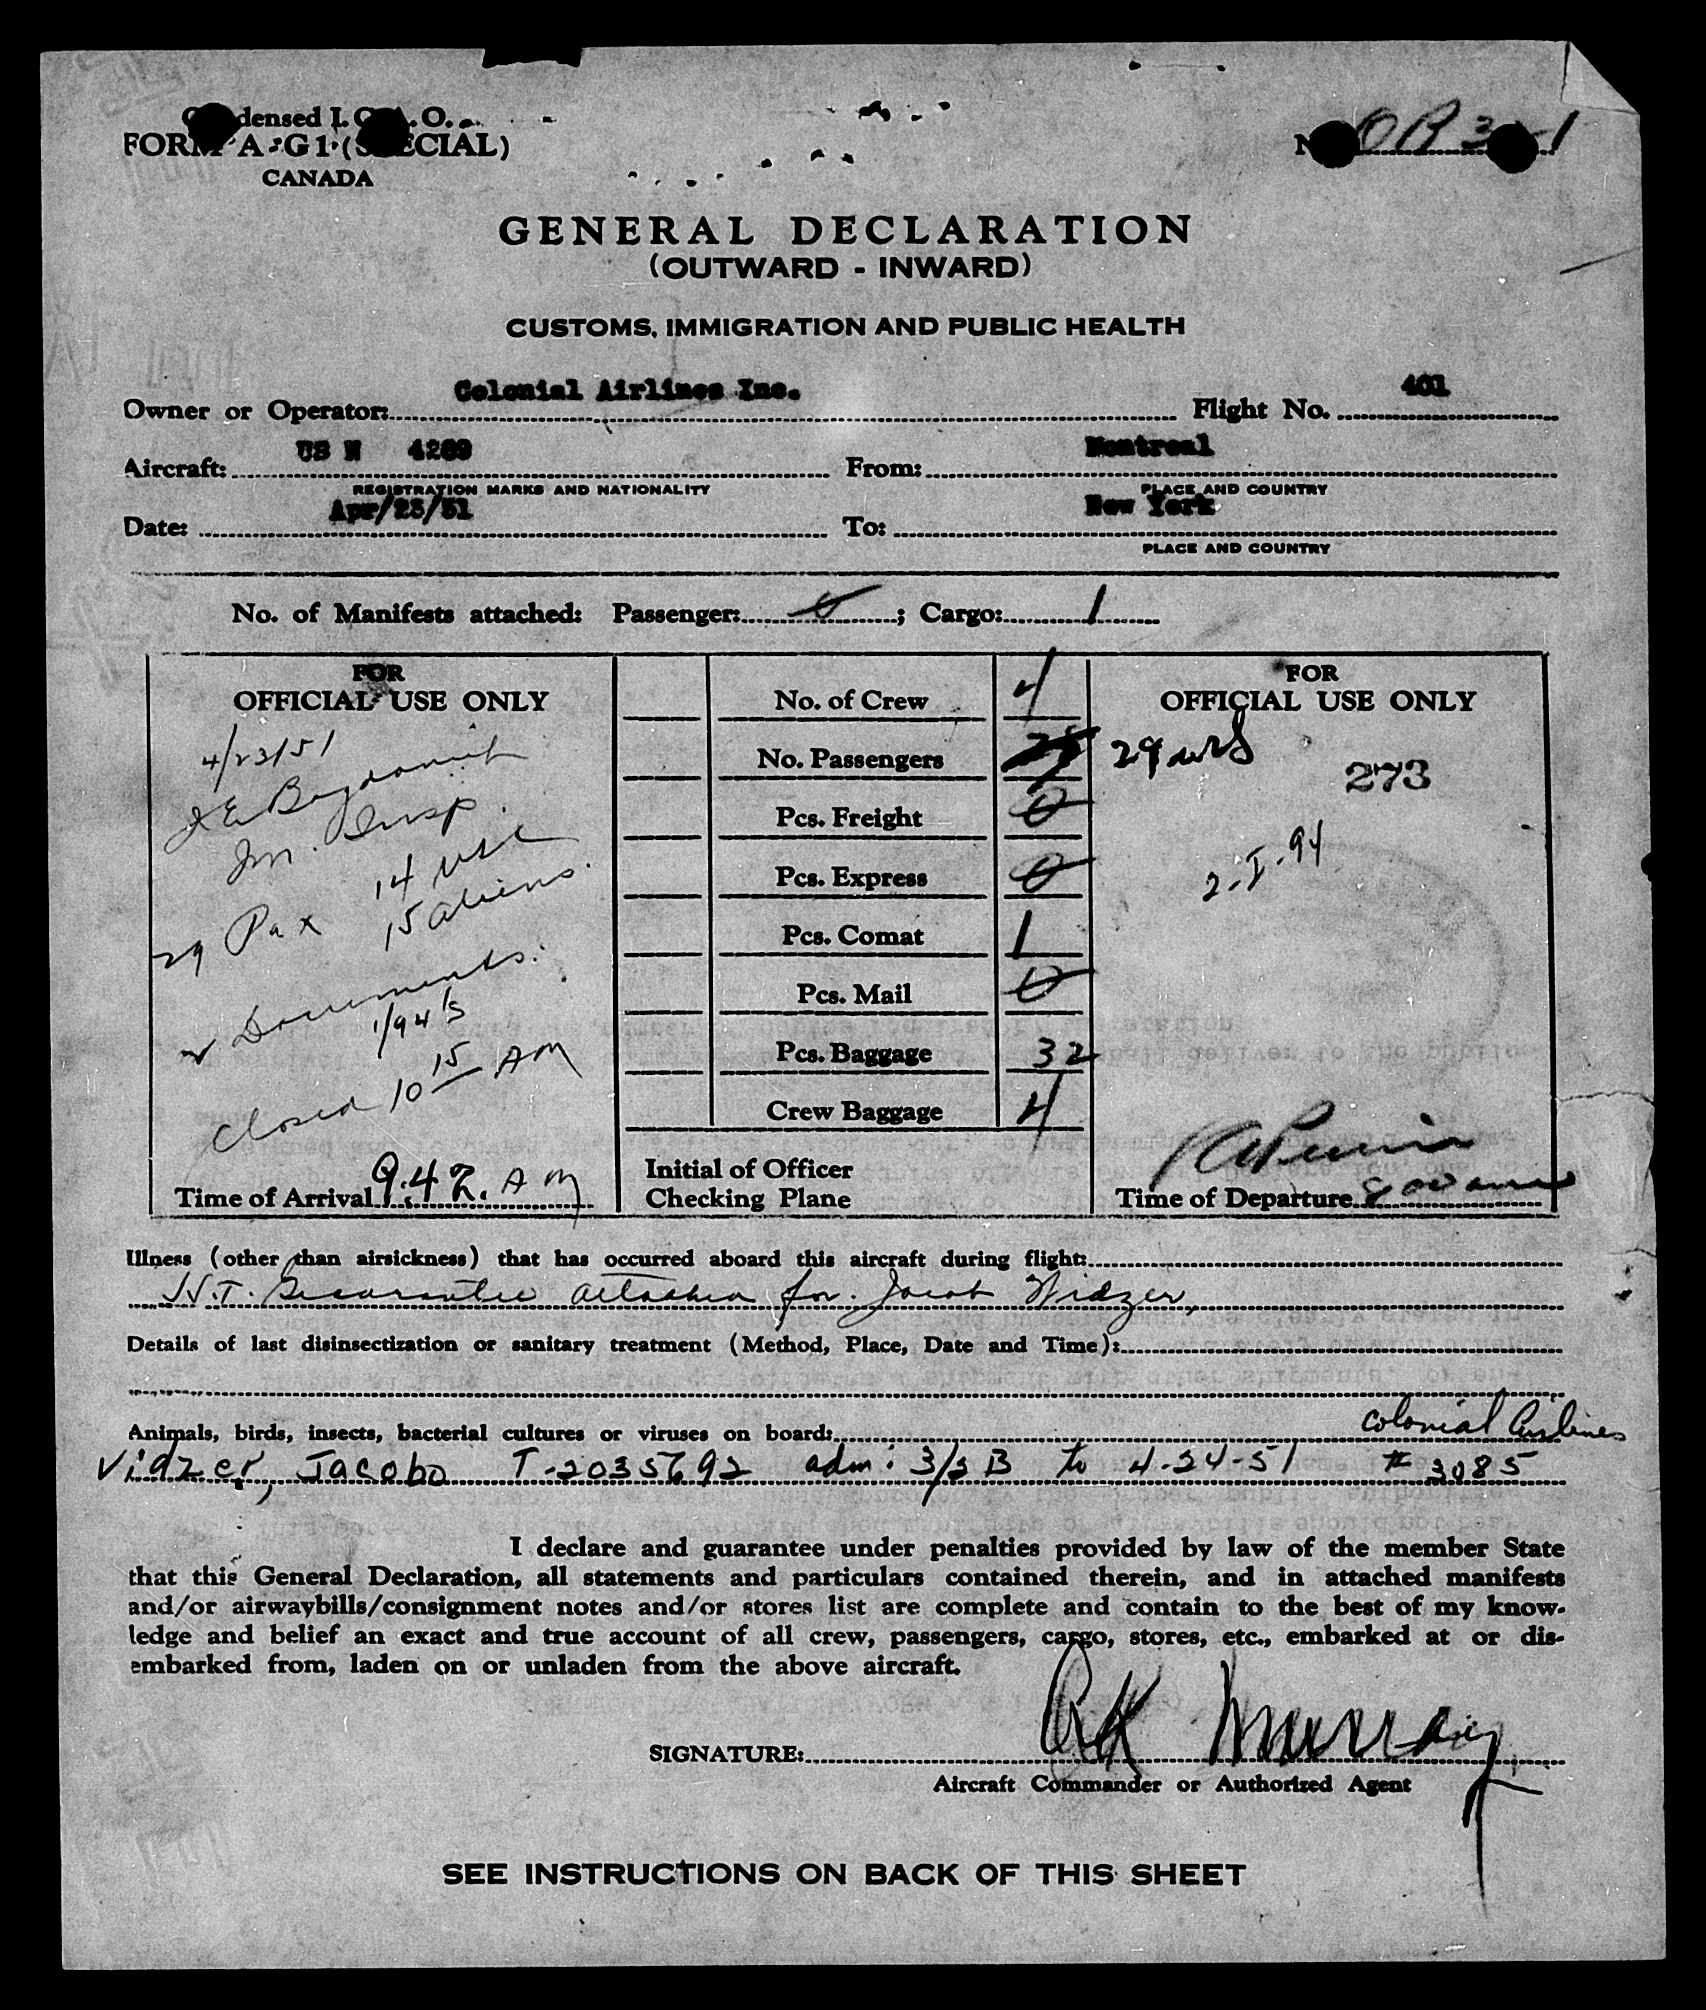 densed I. O.
FORM A-G1 (SPECIAL)
CANADA
GENERAL DECLARATION
(OUTWARD - INWARD)
CUSTOMS, IMMIGRATION AND PUBLIC HEALTH
Owner or Operator: Colonial Airlines Inc. Flight No. 401
Aircraft: US N 4289 From: Montreal
REGISTRATION MARKS AND NATIONALITY PLACE AND COUNTRY
Date: Apr/23/51 To: New York
PLACE AND COUNTRY
No. of Manifests attached: Passenger: 0; Cargo: 1
FOR
OFFICIAL USE ONLY
4/23/51
Im. Insp.
29 Pax 14 USC
15 aliens.
2 Documents.
1/94's
Closed 10 15 AM
Time of Arrival 9:42. AM
No. of Crew 4
No. Passengers
Pcs. Freight 0
Pcs. Express 0
Pcs. Comat 1
Pcs. Mail 0
Pcs. Baggage 32
Crew Baggage 4
Initial of Officer
Checking Plane
FOR
OFFICIAL USE ONLY
29
273
2-I-94
Time of Departure
Illness (other than airsickness) that has occurred aboard this aircraft during flight:
attached for Jacob Widzer,
Details of last disinsectization or sanitary treatment (Method, Place, Date and Time):
Animals, birds, insects, bacterial cultures or viruses on board: Colonial Airlines
Vidzer, Jacobo T-2035692 adm: 3/2 B to 4-24-51 # 3085
I declare and guarantee under penalties provided by law of the member State
that this General Declaration, all statements and particulars contained therein, and in attached manifests
and/or airwaybills/consignment notes and/or stores list are complete and contain to the best of my know-
ledge and belief an exact and true account of all crew, passengers, cargo, stores, etc., embarked at or dis-
embarked from, laden on or unladen from the above aircraft.
SIGNATURE: AK Murray
Aircraft Commander or Authorized Agent
SEE INSTRUCTIONS ON BACK OF THIS SHEET